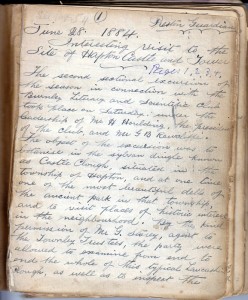 (1)
Preston Guardian
June 28. 1884.
Interesting visit to the
Site of Hapton Castle and Tower
Pages 1, 2, 3, 4.
The second sectional excursion of
the season in connection with the
Burnley Literary and Scientific Club
took place on Saturday, under the
leadership of Mr H Houlding, the president
of the Club, and Mr G B Rawcliffe.
The object of the excursion was to
the sylvan dingle known
as Castle Clough, situated in the
township of Hapton, and at one time
one of the most beautiful dells of
the ancient park in that township,
and to visit places of historic interest
in the neighbourhood. By the kind
permission of Mr G. Lovery, agent to
the Towneley Trustees, the party were
allowed to examine from end to
end the whole of this typical Lancashire
Clough, as well as to inspect the